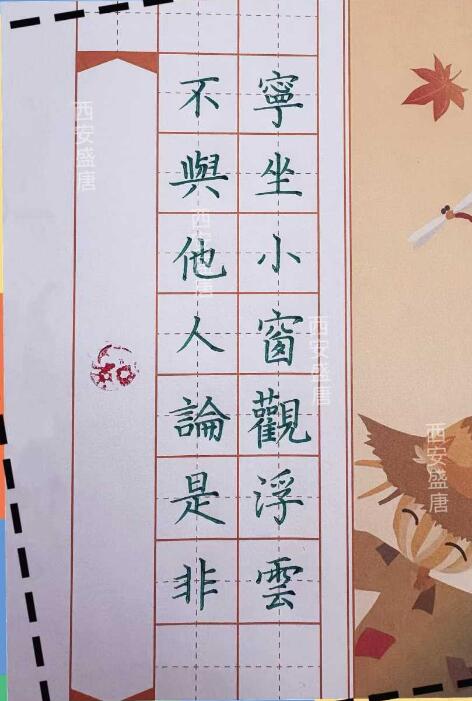 寧坐小窗觀浮雲
不與他人論是非
西安盛唐
西安盛唐
西安盛唐
西安盛唐